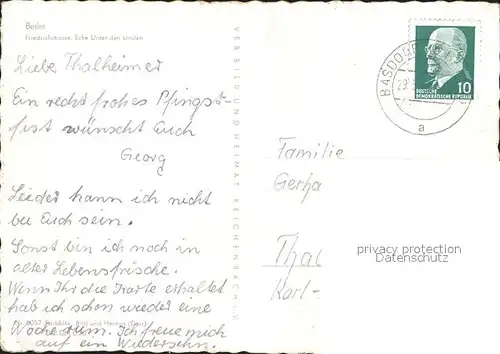 Berlin
Friedrichstrasse, Ecke Unter den Linden
Liebe Thalheimer
Ein recht frohes Pfingst-
fest wünscht Euch
Georg
Leider kann ich nicht
bei Euch sein.
Sonst bin ich noch in
alter Lebensfrische.
Wenn Ihr die Karte erhaltet
hab ich schon wieder eine
Woche rum. Ich freue mich
auf ein Wiedersehn.
VEB BILD UND HEIMAT REICHENBACH
BASDORF
a
DEUTSCHE
DEMOKRATISCHE REPUBLIK
10
Familie
Gerha
Thal
Karl-
privacy protection
Datenschutz